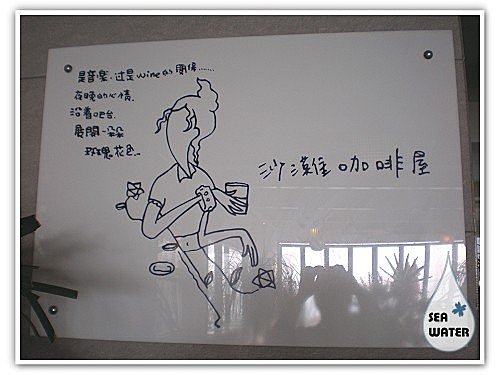 是音樂.還是wine的關係.......
夜晚的心情.
沿著吧台.
展開一朵朵
玫瑰花色...
沙灘咖啡屋
SEA
WATER